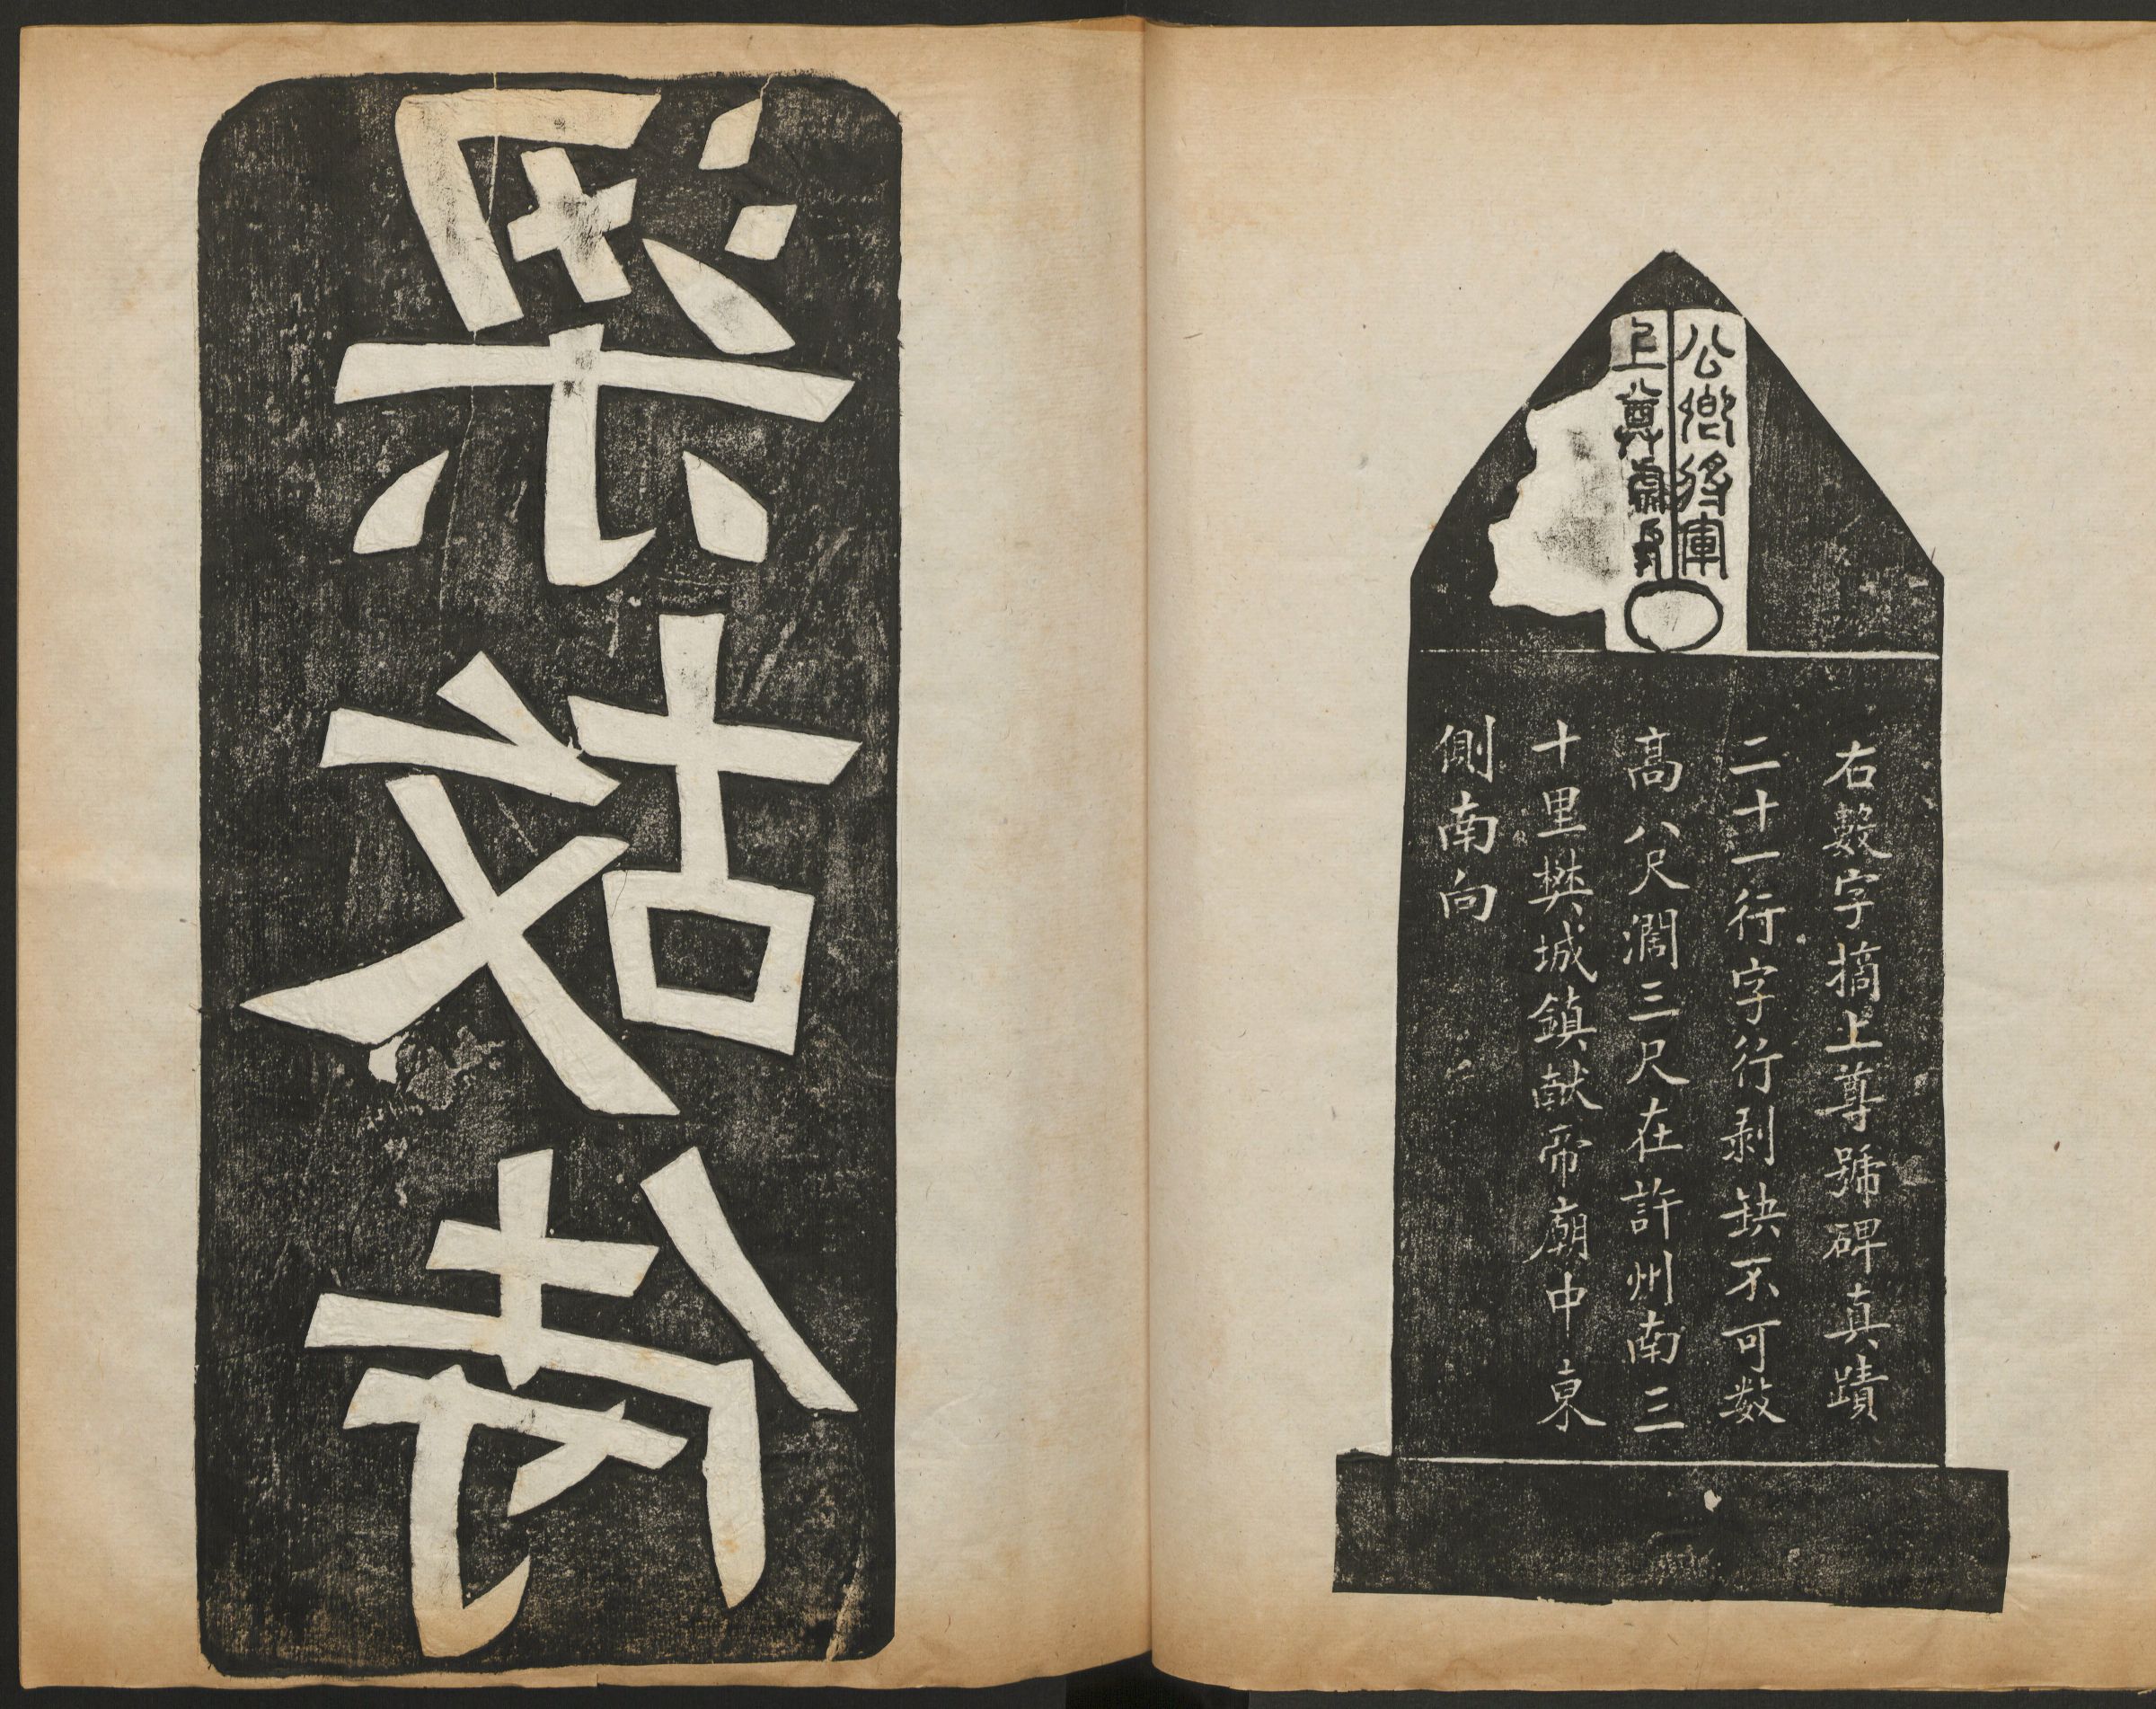 公卿將軍
上尊號
右數字摘上尊號碑真蹟
二十一行字行剥缺不可数
高八尺濶三尺在許州南三
十里樊城鎮献帝廟中東
側南向